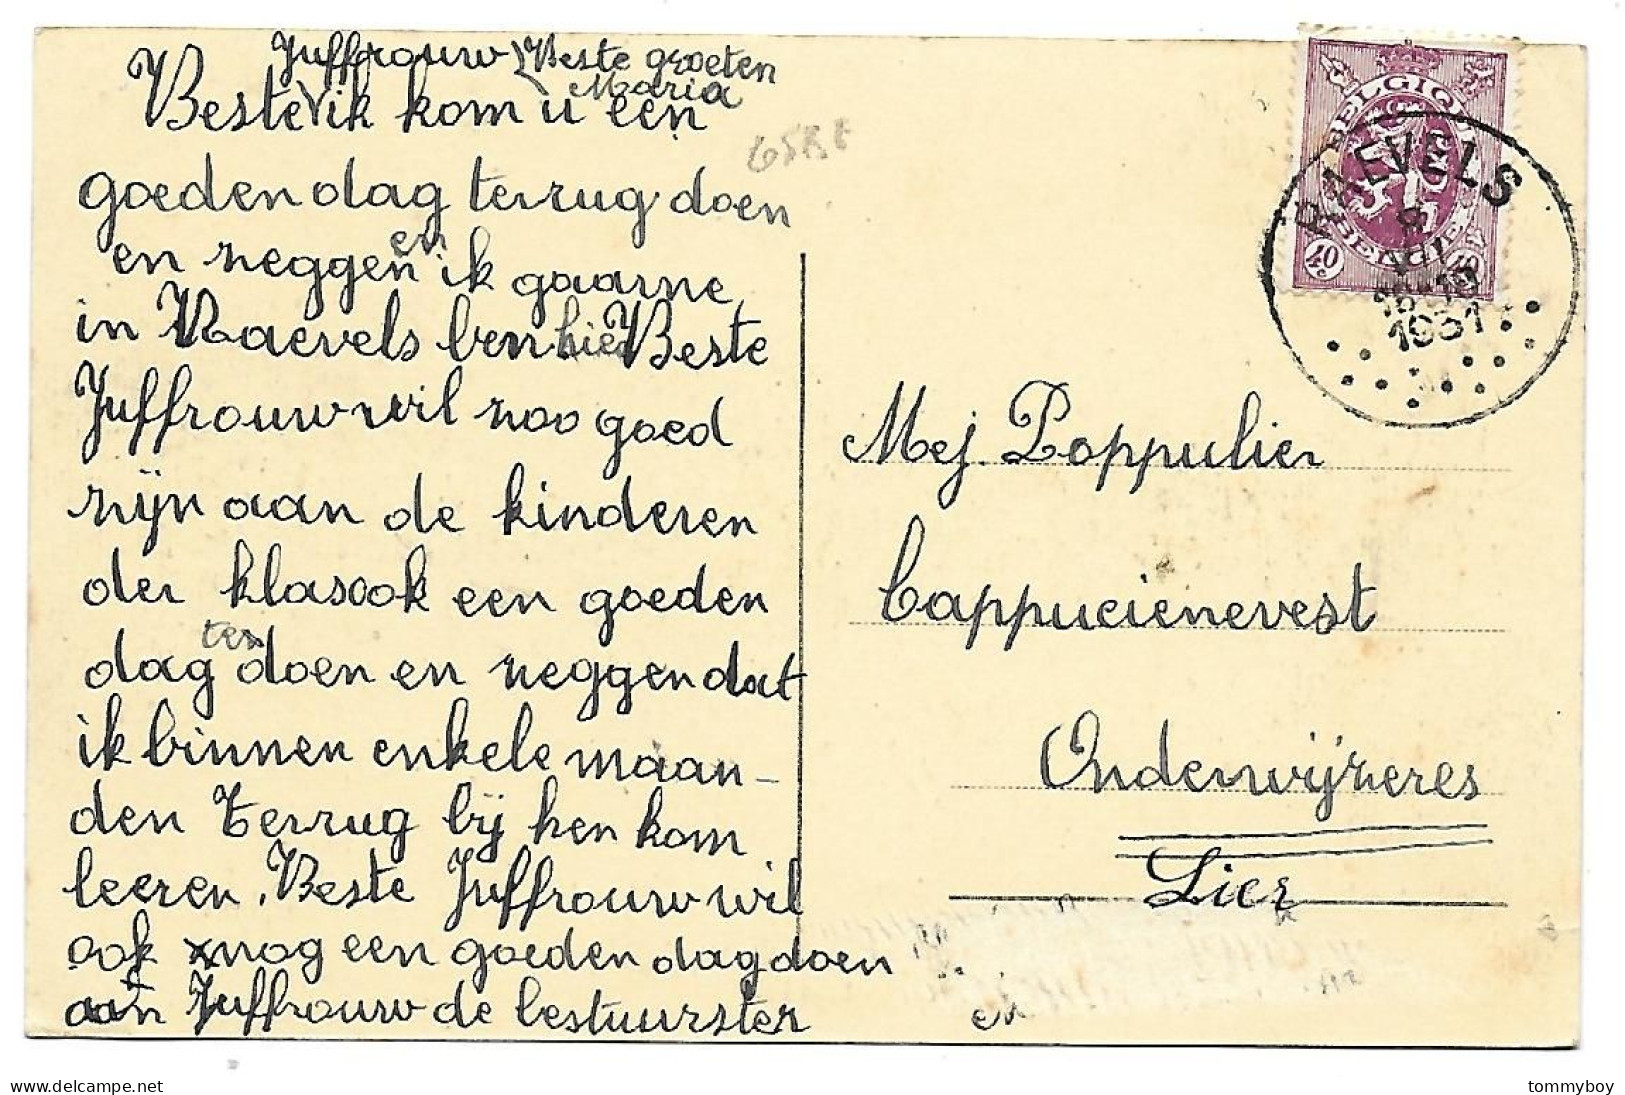 Juffrouw Beste groeten
Maria
Beste ik kom u een
goeden dag terrug doen
en zeggen en ik gaarne
in Raevels ben hier Beste
Juffrouw wil zoo goed
zijn aan de kinderen
der klas ook een goeden
dag ter doen en zeggen dat
ik binnen enkele maan-
den terrug bij hen kom
leeren. Beste Juffrouw wil
ook nog een goeden dag doen
aan Juffrouw de bestuurster
BELGIQUE
BELGIE
40c
RAEVELS
1931
Mej Poppulier
Cappucienevest
Onderwijzeres
Lier
tommyboy